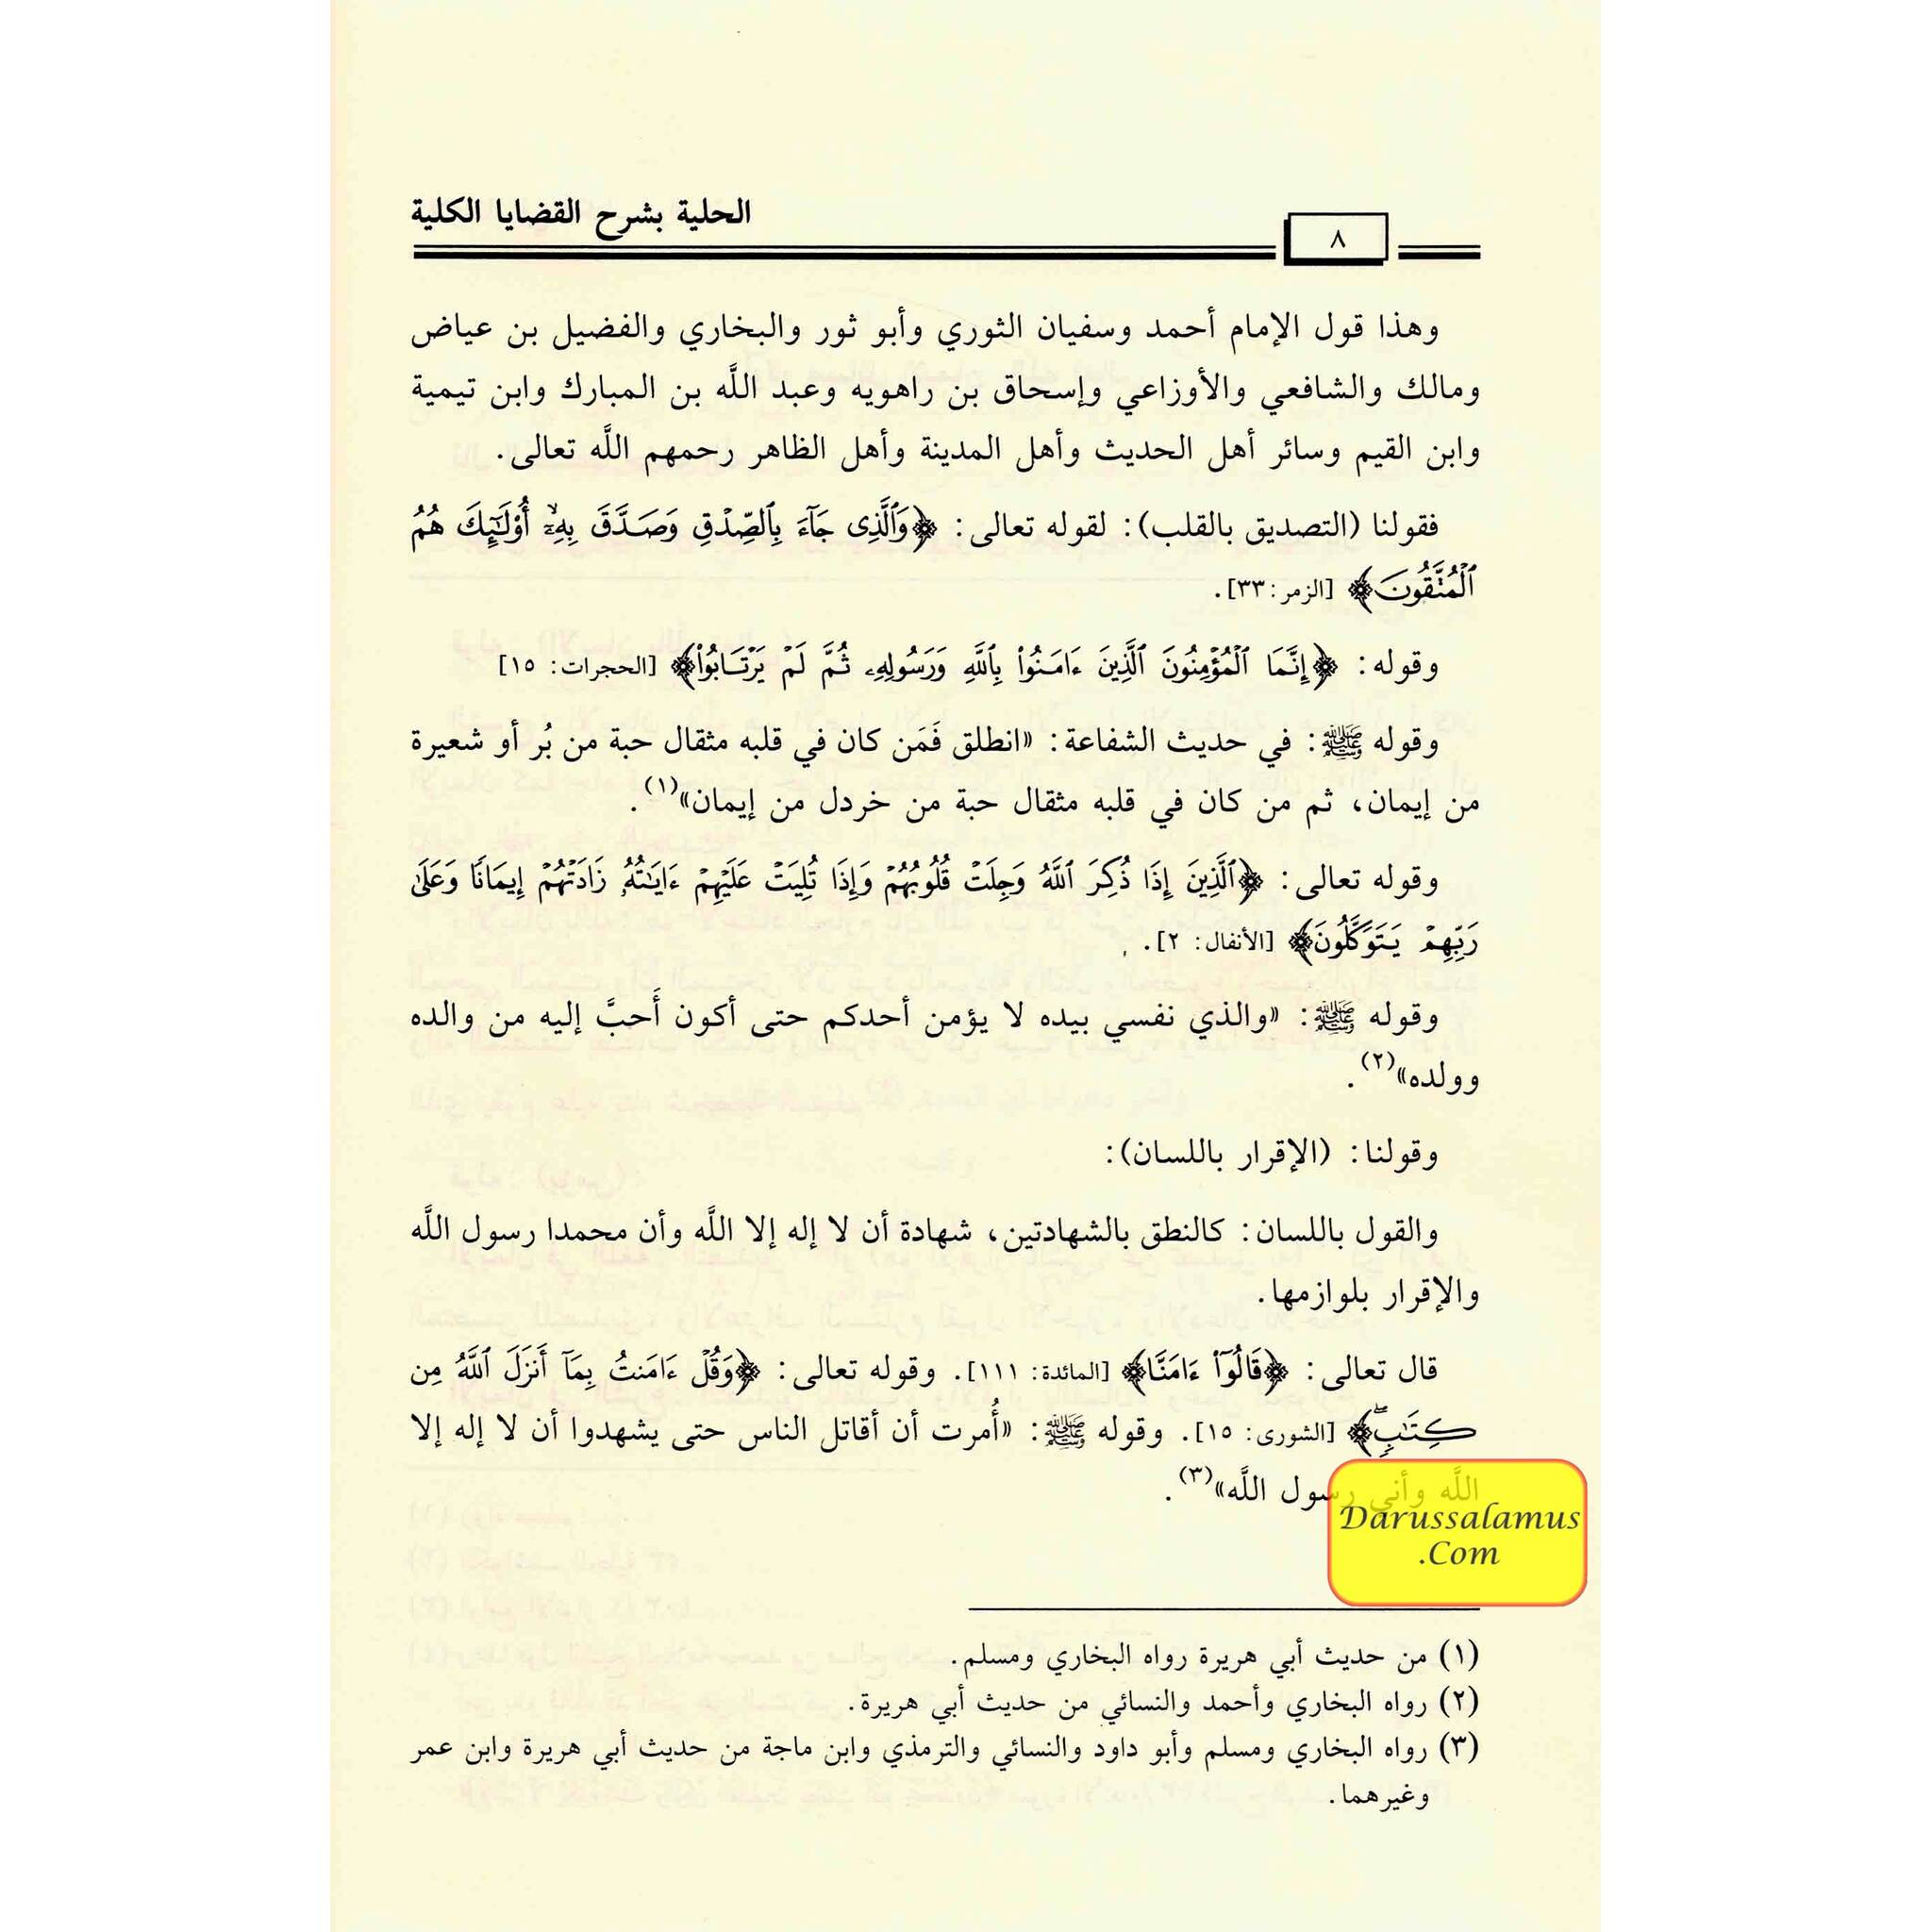 الحلية بشرح القضايا الكلية
٨
وهذا قول الإمام أحمد وسفيان الثوري وأبو ثور والبخاري والفضيل بن عياض
ومالك والشافعي والأوزاعي وإسحاق بن راهويه وعبد اللَّه بن المبارك وابن تيمية
وابن القيم وسائر أهل الحديث وأهل المدينة وأهل الظاهر رحمهم اللَّه تعالى.
فقولنا (التصديق بالقلب): لقوله تعالى: ﴿وَٱلَّذِى جَآءَ بِٱلصِّدْقِ وَصَدَّقَ بِهِۦٓ ۙ أُو۟لَـٰٓئِكَ هُمُ
ٱلْمُتَّقُونَ﴾ [الزمر: ٣٣].
وقوله: ﴿إِنَّمَا ٱلْمُؤْمِنُونَ ٱلَّذِينَ ءَامَنُوا۟ بِٱللَّهِ وَرَسُولِهِۦ ثُمَّ لَمْ يَرْتَابُوا۟﴾ [الحجرات: ١٥]
وقوله ﷺ: في حديث الشفاعة: «انطلق فَمَن كان في قلبه مثقال حبة من بُر أو شعيرة
من إيمان، ثم من كان في قلبه مثقال حبة من خردل من إيمان»(١).
وقوله تعالى: ﴿ٱلَّذِينَ إِذَا ذُكِرَ ٱللَّهُ وَجِلَتْ قُلُوبُهُمْ وَإِذَا تُلِيَتْ عَلَيْهِمْ ءَايَـٰتُهُۥ زَادَتْهُمْ إِيمَـٰنًا وَعَلَىٰ
رَبِّهِمْ يَتَوَكَّلُونَ﴾ [الأنفال: ٢].
وقوله ﷺ: «والذي نفسي بيده لا يؤمن أحدكم حتى أكون أَحبَّ إليه من والده
وولده»(٢).
وقولنا: (الإقرار باللسان):
والقول باللسان: كالنطق بالشهادتين، شهادة أن لا إله إلا اللَّه وأن محمدا رسول اللَّه
والإقرار بلوازمها.
قال تعالى: ﴿قَالُوٓا۟ ءَامَنَّا﴾ [المائدة: ١١١]. وقوله تعالى: ﴿وَقُلْ ءَامَنتُ بِمَآ أَنزَلَ ٱللَّهُ مِن
كِتَـٰبٍ ۖ﴾ [الشورى: ١٥]. وقوله ﷺ: «أُمرت أن أقاتل الناس حتى يشهدوا أن لا إله إلا
اللَّه وأني رسول اللَّه»(٣).
Darussalamus
.Com
(١) من حديث أبي هريرة رواه البخاري ومسلم.
(٢) رواه البخاري وأحمد والنسائي من حديث أبي هريرة.
(٣) رواه البخاري ومسلم وأبو داود والنسائي والترمذي وابن ماجة من حديث أبي هريرة وابن عمر
وغيرهما.